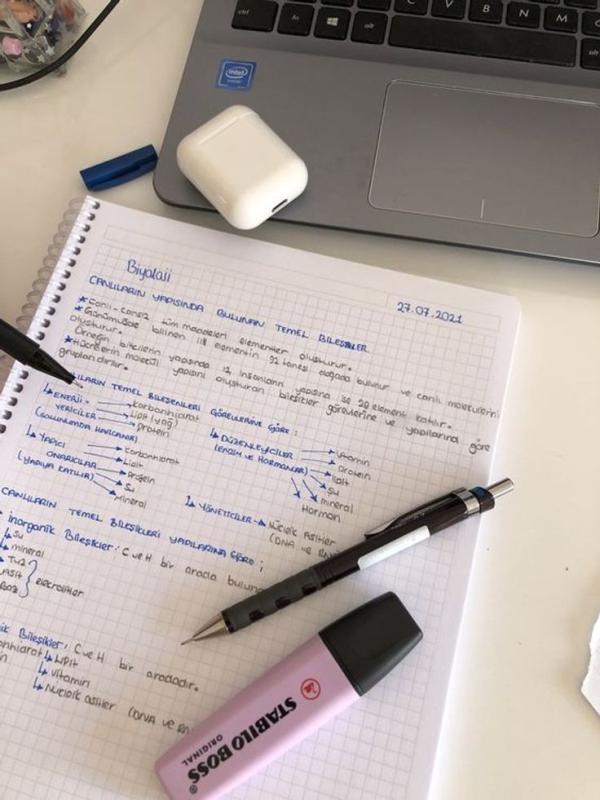 Fn
alt
C
V
B
N
M
alt
intel
Biyoloji
27.07.2021
CANLILARIN YAPISINDA BULUNAN TEMEL BİLEŞİKLER
★Canlı-cansız tüm maddeleri elementler oluşturur.
★Günümüzde bilinen 118 elementin 92 tanesi doğada bulunur ve canlı moleküllerini
oluşturur.
Örneğin bitkilerin yapısında 12, insanların yapısına ise 20 element katılır.
★Hücrelerin molekül yapısını oluşturan bileşikler görevlerine ve yapılarına göre
gruplandırılır.
TEMEL BİLEŞENLERİ GÖREVLERİNE GÖRE:
↳ENERJİ → Karbonhidrat
VERİCİLER → Lipit (yağ)
(SOLUNUMDA HARCANIR) → Protein
↳YAPICI → Karbonhidrat
ONARICILAR → Lipit
(YAPIYA KATILIR) → Protein
→ Su
→ Mineral
↳DÜZENLEYİCİLER → Vitamin
(ENZİM VE HORMONLAR) → Protein
→ Lipit
→ Su
→ mineral
→ Hormon
↳YÖNETİCİLER → Nükleik Asitler
(DNA ve RNA
CANLILARIN TEMEL BİLEŞİKLERİ YAPILARINA GÖRE;
İnorganik Bileşikler: C ve H bir arada
↳Su
↳mineral
↳Tuz
Asit
Baz
} elektrolitler
Bileşikler: C ve H bir aradadır.
↳Lipit
↳Vitamin
↳Nükleik asitler (DNA ve RN
STABILO BOSS
ORIGINAL